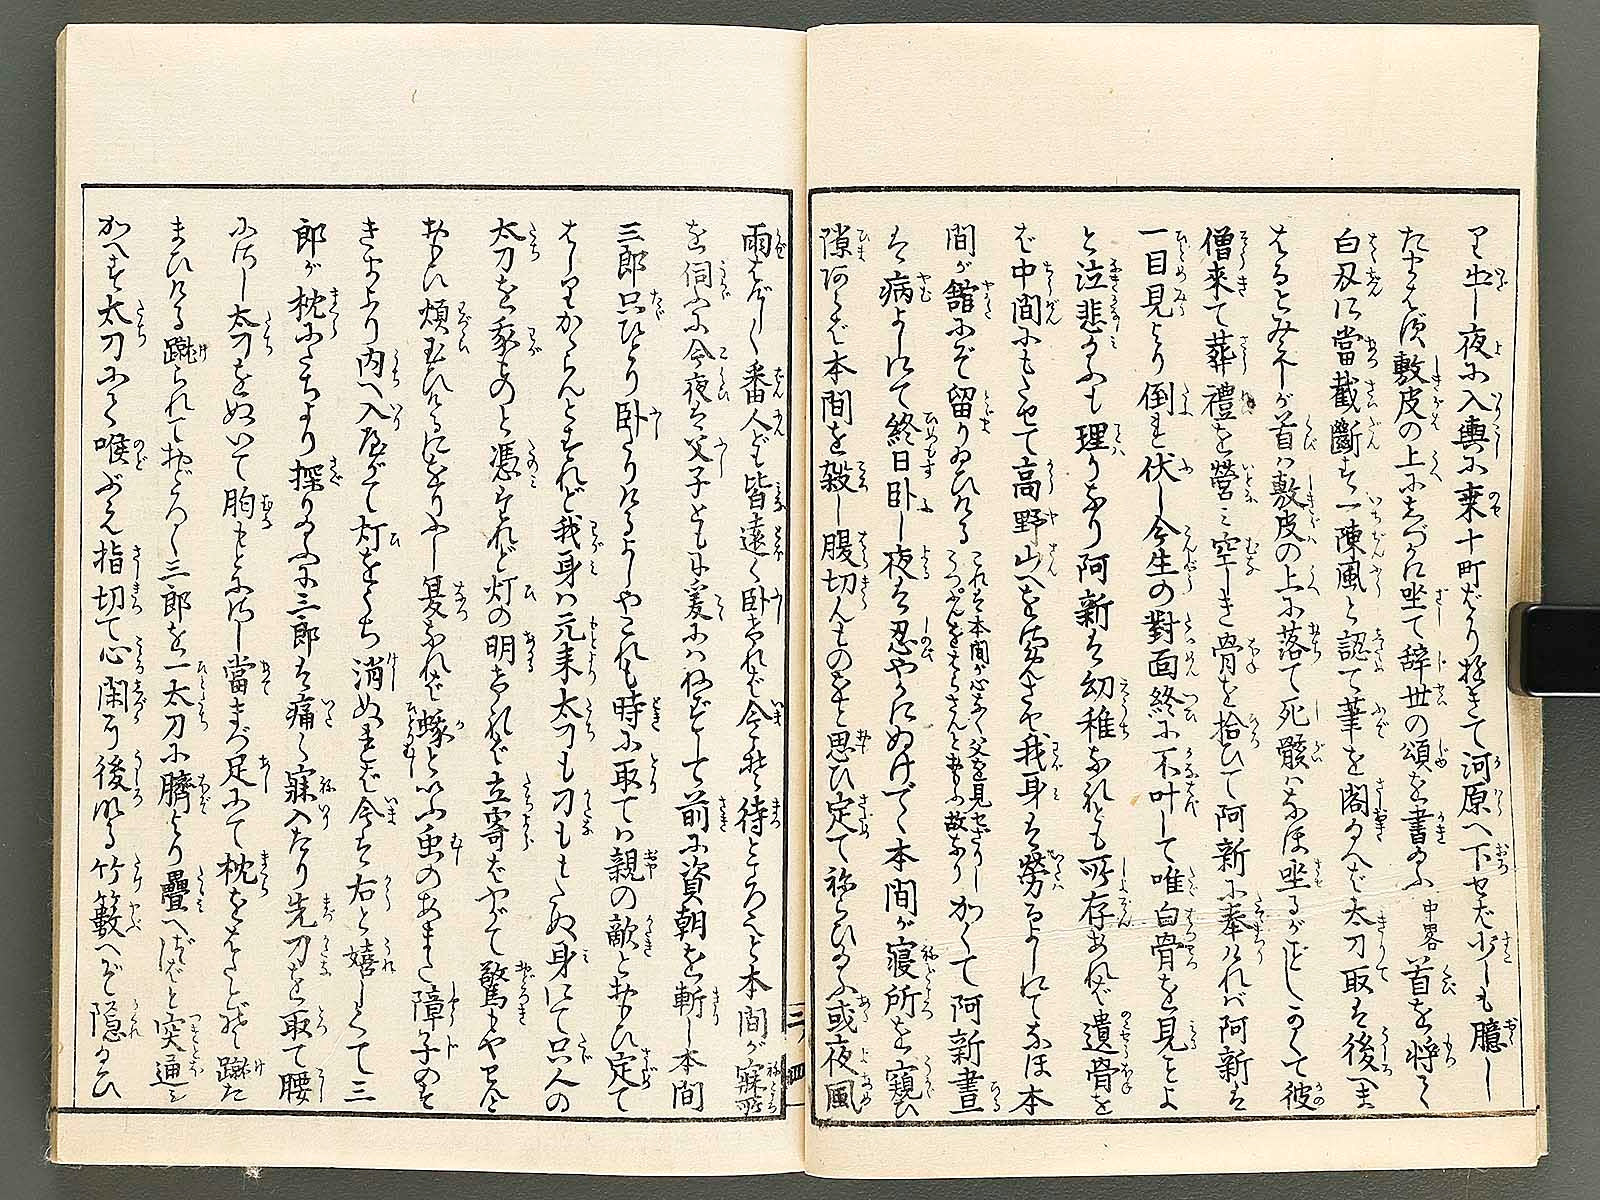 り出し夜に入輿に乗十町ばかり極きて河原へ下せば少しも臆し
たまはず敷皮の上にしづかに坐て辞世の頌を書給ふ 中畧 首を将て
白刄に當截斷す一陳風と認て筆を閣給へば太刀取は後へま
はるとみえしが首ハ敷皮の上に落て死骸ハなほ坐るが如しかくて彼
僧来て葬禮を營ミ空しき骨を拾ひて阿新に奉ければ阿新は
一目見より倒れ伏し今生の對面終に不叶して唯白骨を見ことよ
と泣悲給ふも理りなり阿新は幼稚なれども所存あれば遺骨を
ば中間にもたせて高野山へをさめさせ我身は勞るよしにてなほ本
間が舘にぞ留りゐひける これは本間が心なく父を見せざりし うつぷんをはらさんとおもふ故なり かくて阿新晝
は病よしにて終日卧し夜は忍やかにぬけでて本間が寝所を窺ひ
隙あらば本間を殺し腹切んものをと思ひ定て祢らひ給ふ或夜風
雨はげしく番人ども皆遠く卧ければ今こそ待ところよと本間が寐所
を伺ふに今夜は父子ともに爰にハ祢ずして前に資朝を斬し本間
三郎只ひとり卧たりけるよしやこれも時に取てハ親の敵とおもひ定て
はしりかからんとすれど我身ハ元来太刀も刀ももたぬ身にて只人の
太刀を我ものと憑けれど灯の明ければ立寄ばやがて驚もやせんと
おもひ煩ひけるにをりふし夏なれば蛾といふ虫のあまた障子のす
きまより内へ入やがて灯をうち消ぬれば今は右と嬉しくて三
郎が枕にたちより探り給ふに三郎は痛く寐入たり先刀を取て腰
にさし太刀をぬいて胸もとにさし當まづ足にて枕をはたと蹴た
まひける蹴られておどろく三郎を一太刀に臍より疊へずばと突通し
かへす太刀にて喉ぶえ指切て心閑に後なる竹籔へぞ隠給ひ
三ノ四